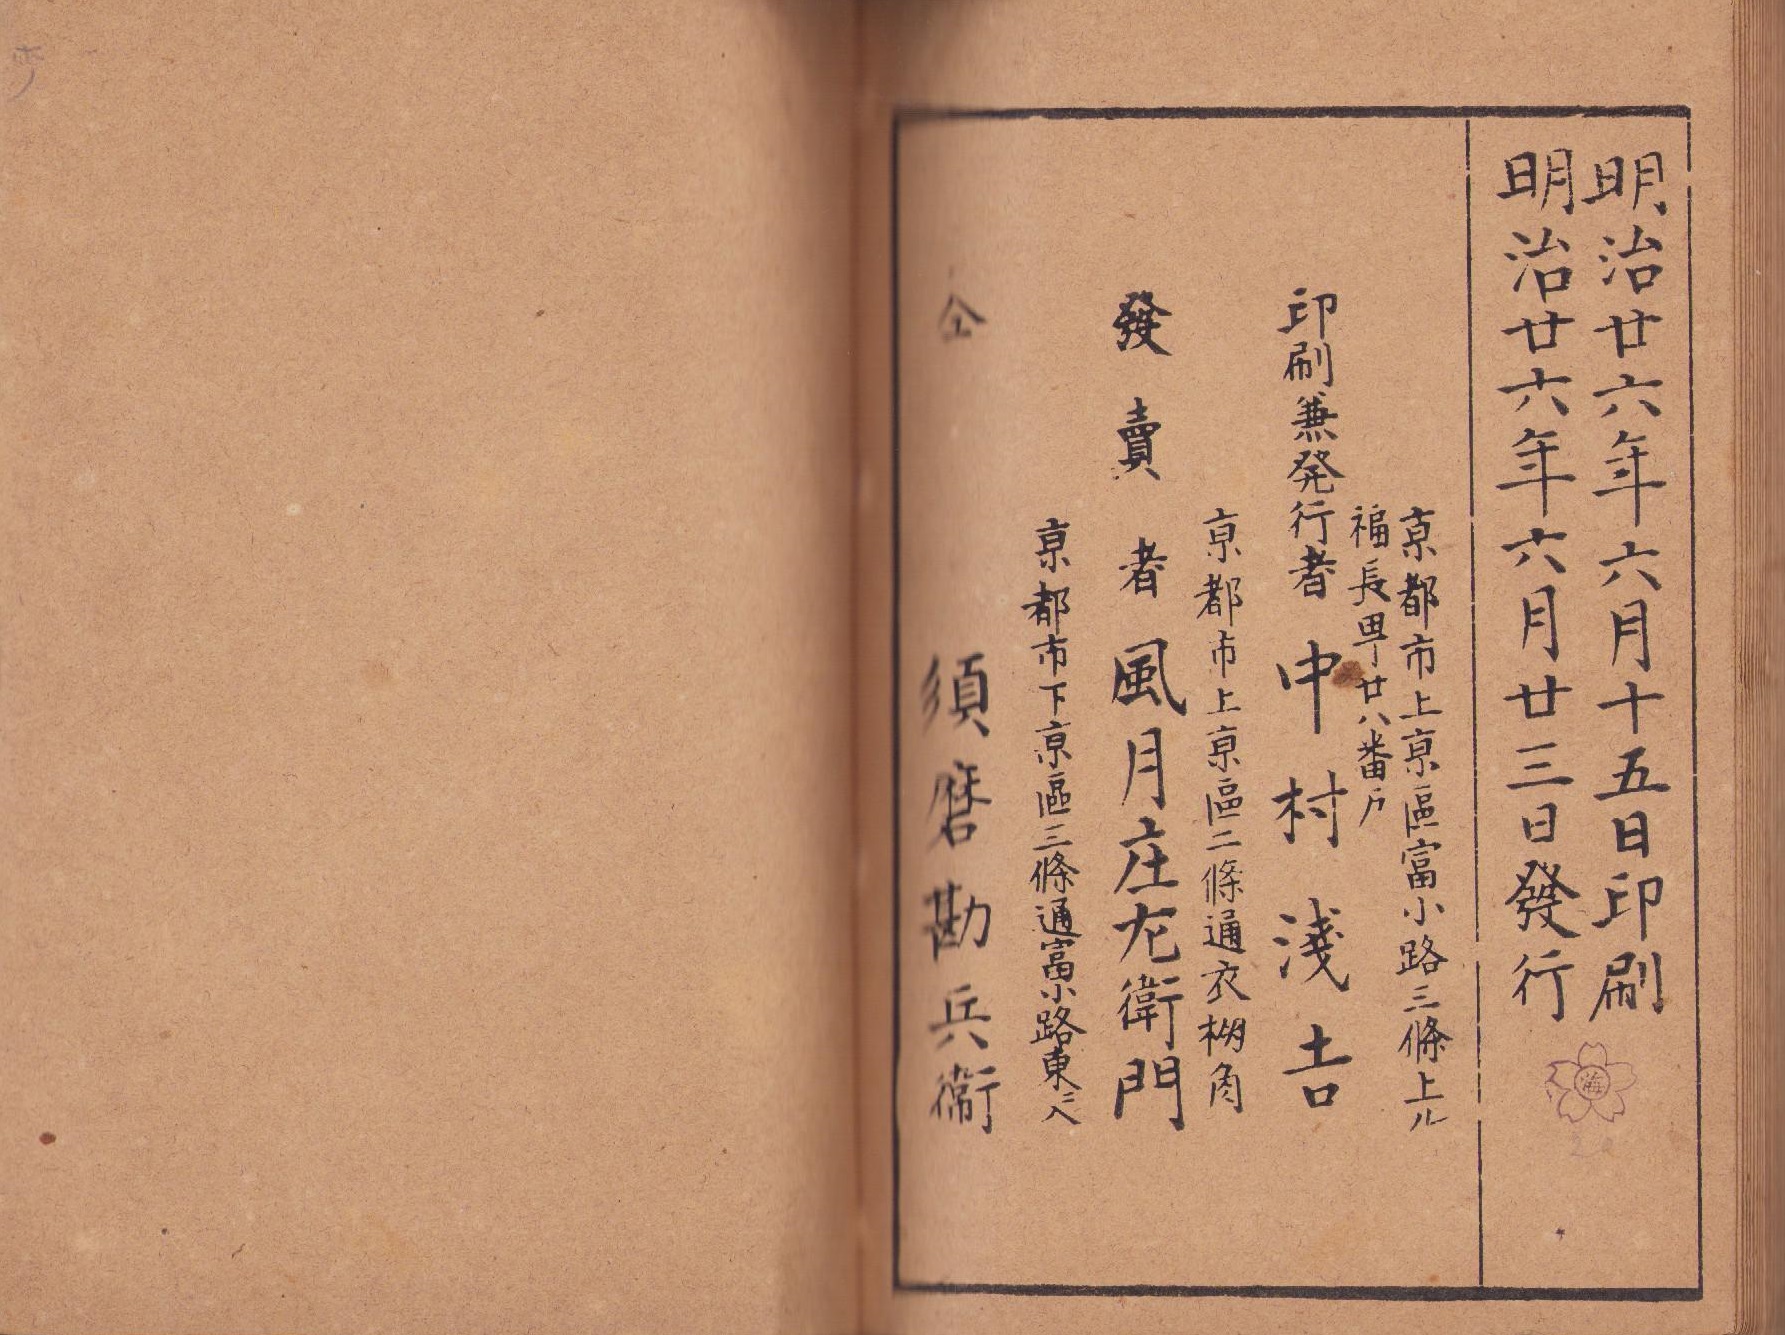 明治廿六年六月十五日印刷
明治廿六年六月廿三日發行
京都市上京區富小路三條上ル
福長甼廿八番戸
印刷兼発行者 中村淺吉
京都市上京區二條通衣棚角
發賣者 風月庄左衛門
京都市下京區三條通富小路東ヱ入
仝 須磨勘兵衛